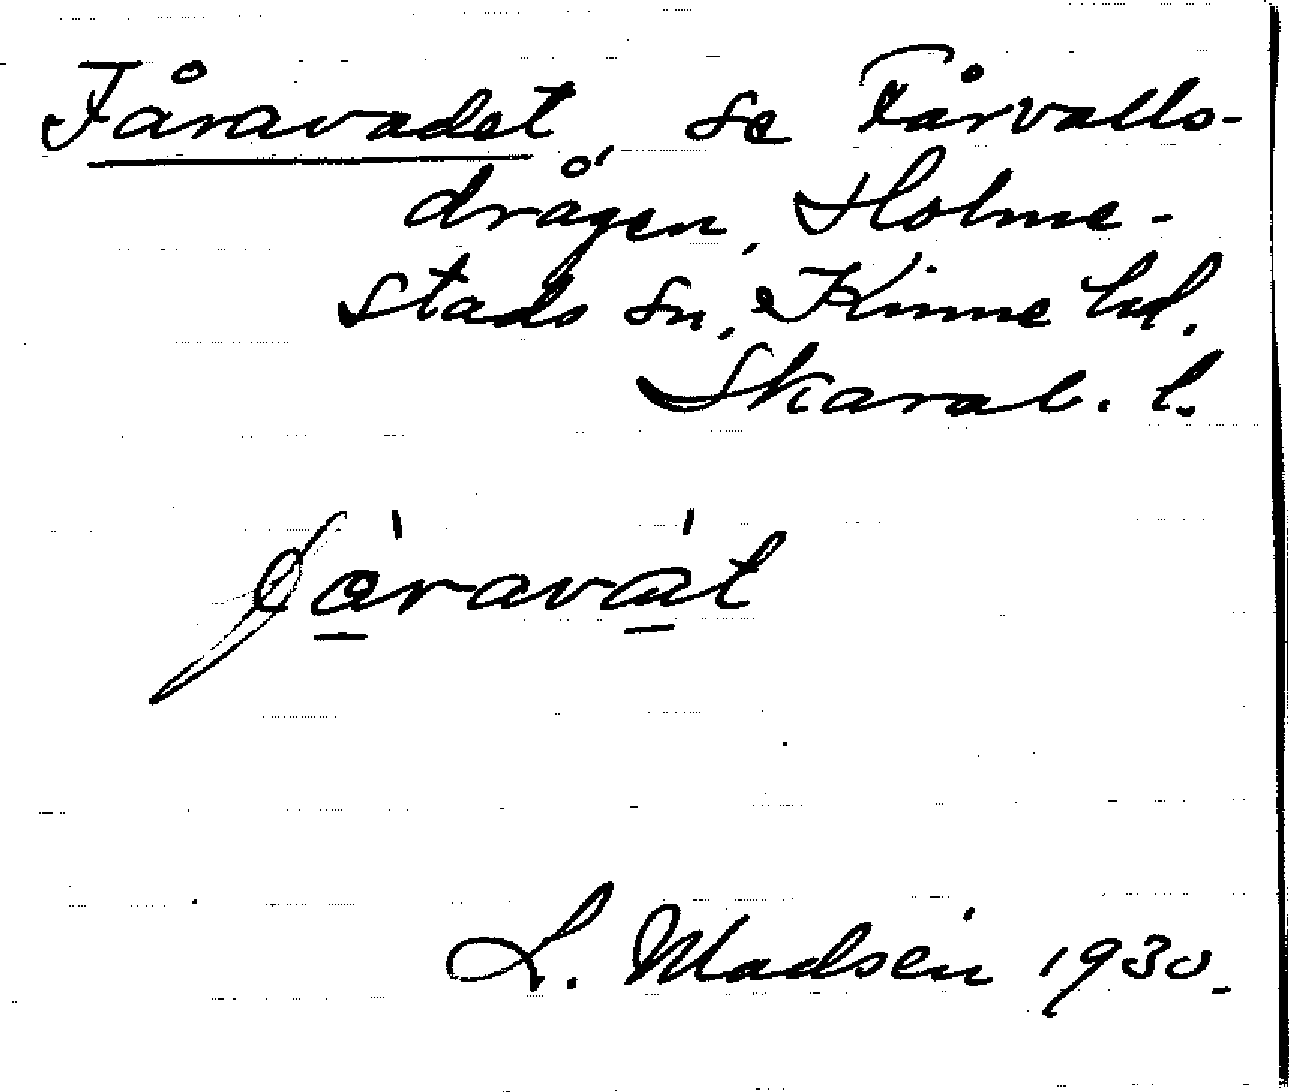 Fåravadet se Fårvalls-
drågen, Holme-
stads sn, Kinne hd.
Skarab. l.
fàravàt
L. Madsén 1930.